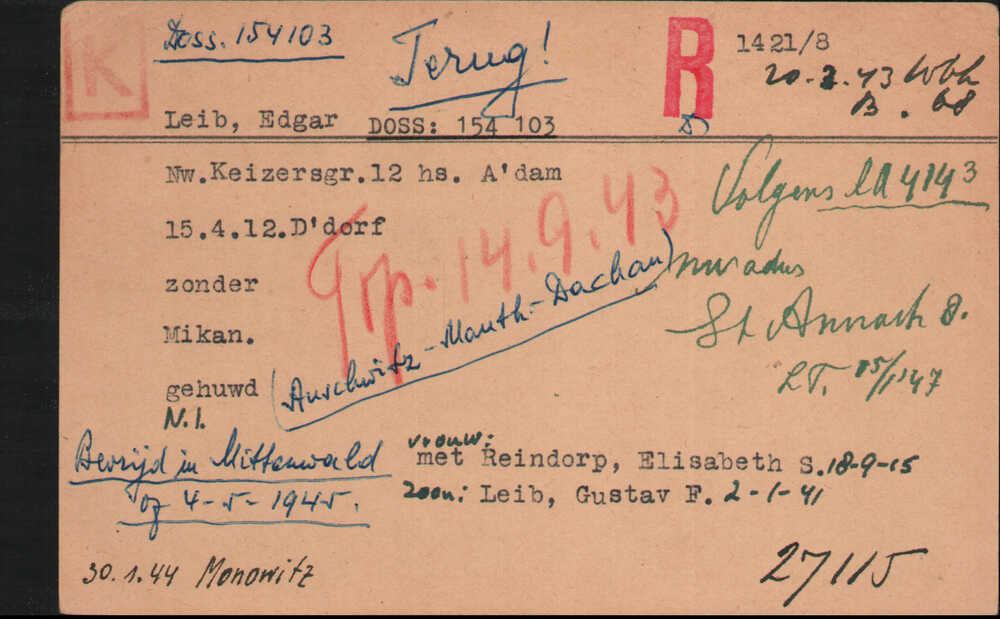 K
Doss. 154103
Terug!
R
1421/8
20-2-43 Wbk
B. 68
Leib, Edgar DOSS: 154 103
Nw.Keizersgr.12 hs. A'dam
Volgens LA 4143
15.4.12.D'dorf
Trp. 14.9.43
zonder
nw adres
Mikan.
St Annastr 8.
gehuwd (Auschwitz - Mauth - Dachau)
LT. 15/1 '47
N.I.
Bevrijd in Mittenwald
op 4-5-1945.
vrouw:
met Reindorp, Elisabeth S. 18-9-15
zoon: Leib, Gustav F. 2-1-41
30.1.44 Monowitz
27115